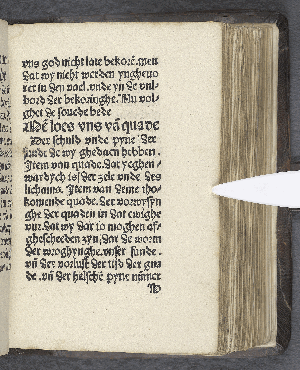 vns god nicht late bekorē. wen
dat wy nicht werden yngheuo
ret in den vael. vnde yn de vul
bord der bekoringhe. Nu vol
ghet de souede bede
Mdē loes vns vā quade
Der schuld vnde pyne der
sunde de wy ghedaen hebben.
Item van quade. dat yeghen
wardych is der zele vnde des
lichams. Item van deme tho
komende quade. der vorwysyn
ghe der quaden in dat ewighe
vur. dat wy dar to moghen af
ghescheeden zyn, dar de worm
der wroghynghe. vnser sunde.
vn̄ der vorlust der tijd der gna
de. vn̄ der helschē pyne nūmer